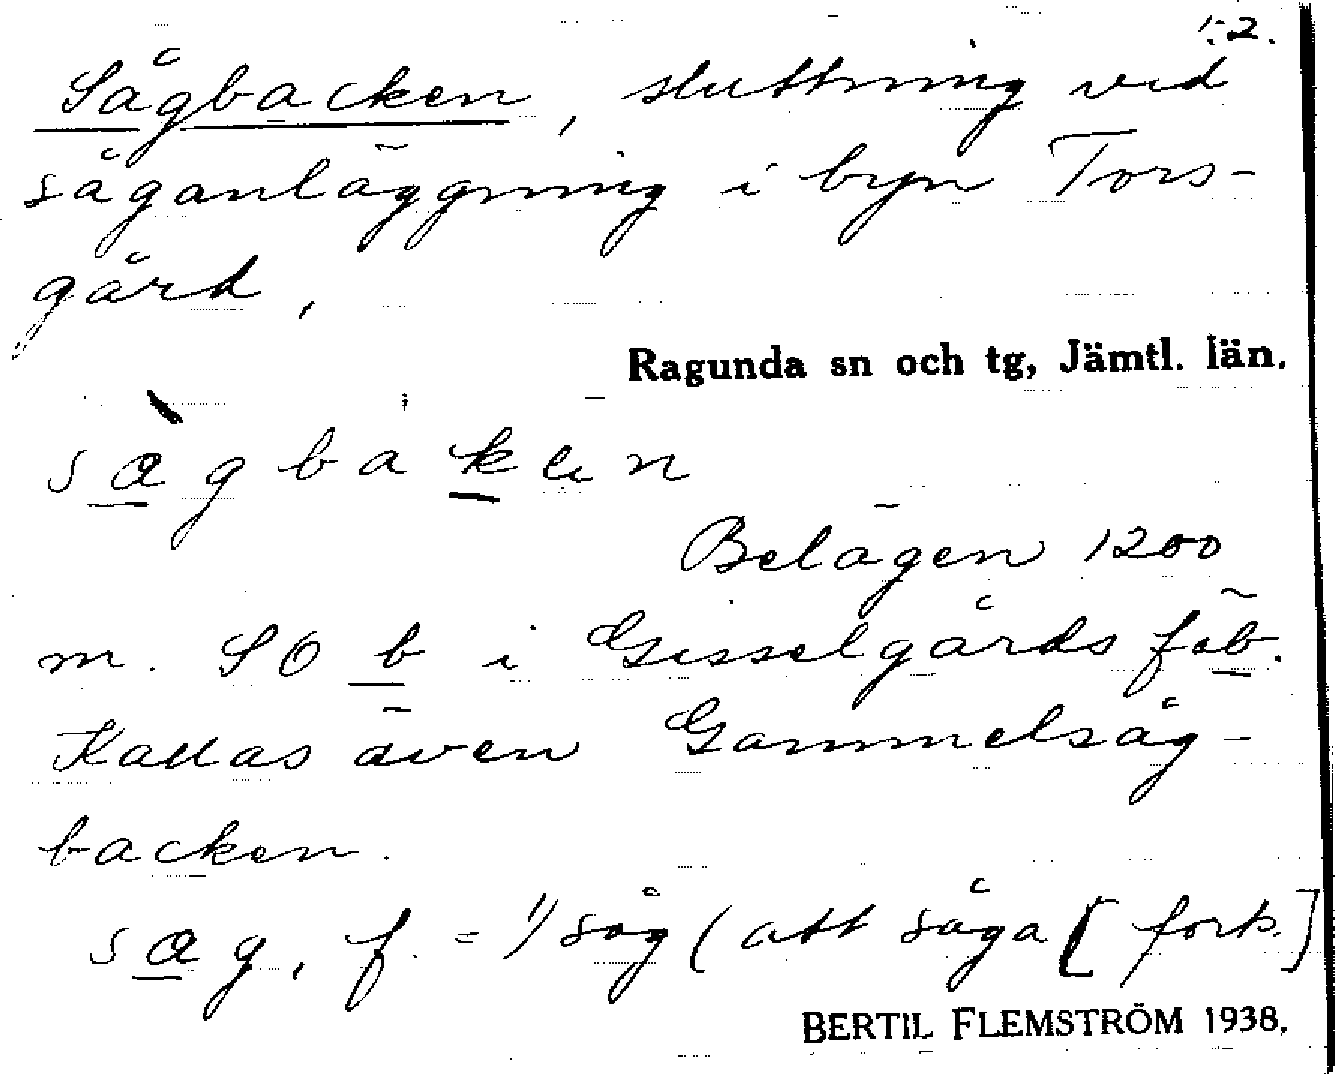 1:2.
Sågbacken, sluttning vid
såganläggning i byn Tors-
gård,
Ragunda sn och tg, Jämtl. län.
sàgbaken
Belägen 1200
m. SO b i Gisselgårds fäb.
Kallas även Gammelsåg-
backen.
sag, f. = 1/ såg (att såga [fork.]
BERTIL FLEMSTRÖM 1938.